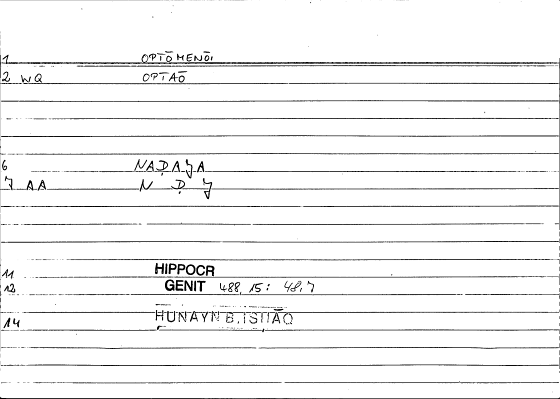 1 OPTŌMENŌI
2 WQ OPTAŌ
6 NAḌAJA
7 AA N Ḍ J
11 HIPPOCR
12 GENIT 488, 15: 48,7
14 ḤUNAYN B.ISḤĀQ